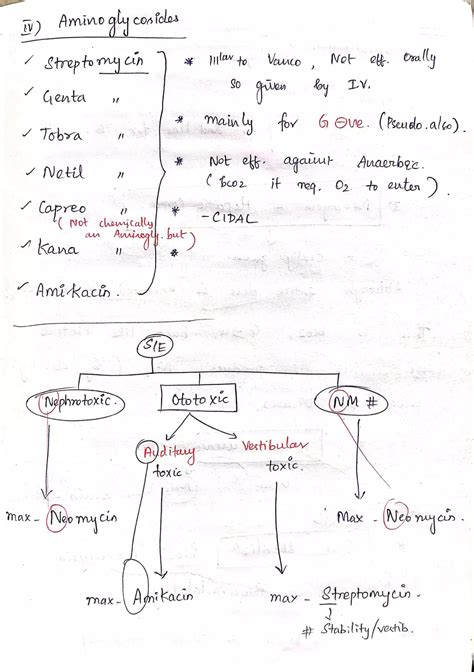 IV) Aminoglycosides
✓ Streptomycin
✓ Genta "
✓ Tobra "
✓ Netil "
✓ Capreo "
( Not chemically an Aminogly. but)
✓ Kana "
✓ Amikacin.
* lllar to Vanco, Not eff. Orally
so given by I.V.
* mainly for G ⊖ve. (Pseudo. also)
* Not eff. against Anaerbec.
( Bco2 it req. O2 to enter).
* -CIDAL
*
S/E
Nephrotoxic.
Ototoxic
NM #
Auditary toxic
Vestibular toxic.
max - Neomycin
Max - Neomycin.
max - Amikacin
max - Streptomycin.
# Stability/vestib.